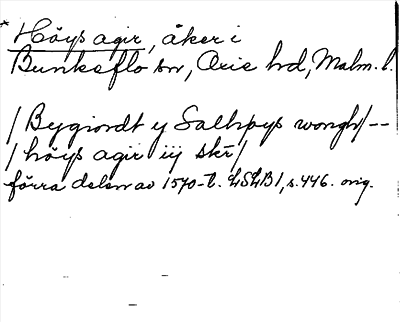 * Höys agir, åker i
Bunkeflo sn, Oxie hd, Malm. l.
/Bygiordt y Salhpys wongh/--
/höys agir iij skr/
förra delen av 1570-t. LSLB1, s. 446. orig.